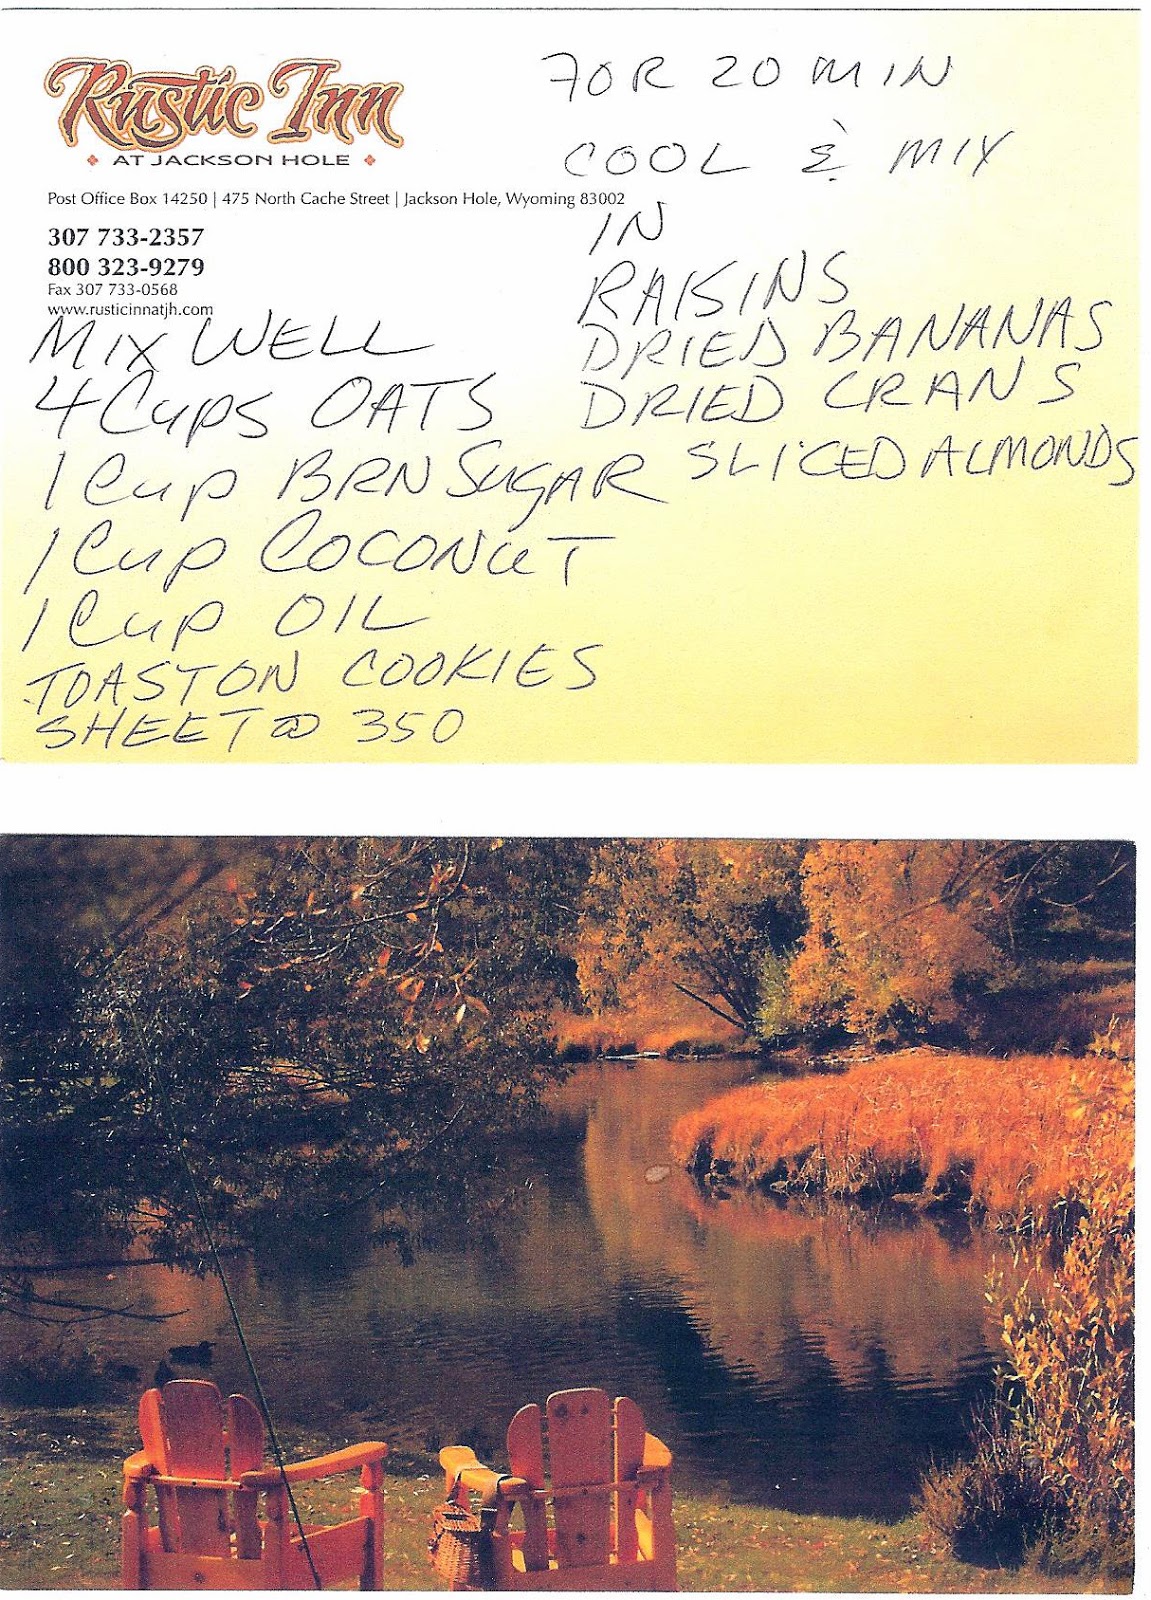 Rustic Inn
AT JACKSON HOLE
Post Office Box 14250 | 475 North Cache Street | Jackson Hole, Wyoming 83002
307 733-2357
800 323-9279
Fax 307 733-0568
www.rusticinnatjh.com
MIX WELL
4 Cups OATS
1 Cup BRN SUGAR
1 Cup COCONUT
1 Cup OIL
TOAST ON COOKIES
SHEET @ 350
FOR 20 MIN
COOL & MIX
IN
RAISINS
DRIED BANANAS
DRIED CRANS
SLICED ALMONDS